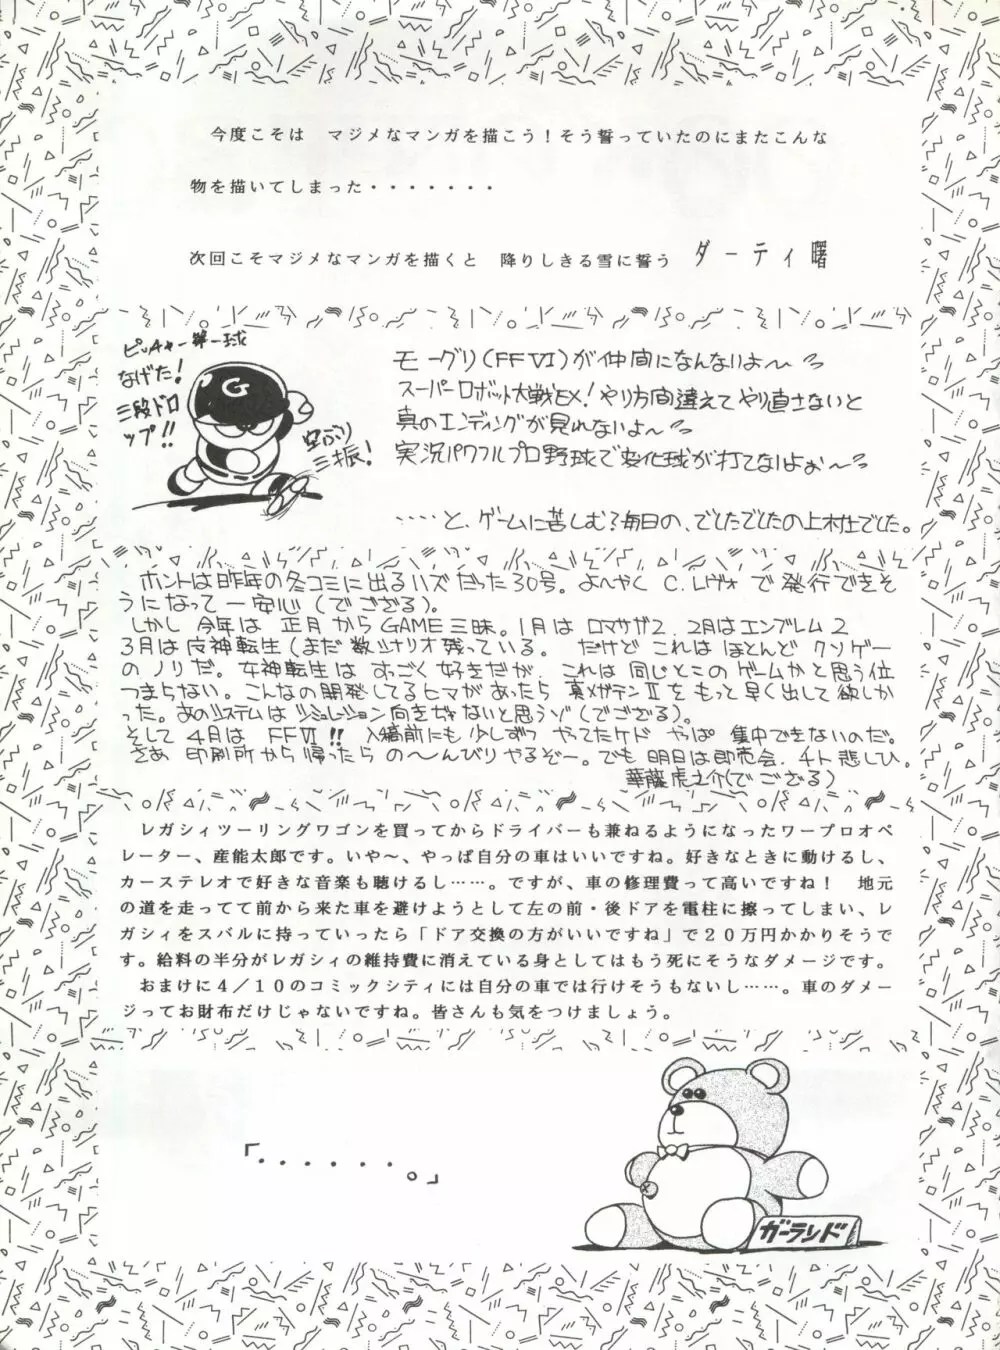 今度こそは　マジメなマンガを描こう！そう誓っていたのにまたこんな
物を描いてしまった・・・・・・・
次回こそマジメなマンガを描くと　降りしきる雪に誓う　ダーティ曙
ピッチャー第一球
なげた！
三段ドロ
ップ!!
G
空ぶり
三振！
モーグリ(FFⅥ)が仲間になんないよ〜
スーパーロボット大戦EX！やり方間違えてやり直さないと
真のエンディングが見れないよ〜
実況パワフルプロ野球で変化球が打てないよぉ〜
‥‥と、ゲームに苦しむ？毎日の、でしたでしたの上村土でした。
ホントは昨年の冬コミに出るハズだった30号。よ〜やく C.レヴォ で 発行できそ
うになって一安心（でござる）。
しかし 今年は 正月からGAME三昧。1月は ロマサガ2、2月はエンブレム2
3月は女神転生（まだ数シナリオ残っている。　だけど これは ほとんど クソゲー
のノリだ。女神転生は すっごく好きだが、これは 同じとこのゲームかと思う位
つまらない。こんなの開発してるヒマがあったら 真メガテンⅡを もっと早く出して欲しか
った。あのシステムは シミュレーション向きぢゃないと思うゾ（でござる）。
そして 4月は FFⅥ!! 入稿前にも少しずつ やってたケド やっぱ 集中できないのだ。
さあ 印刷所から帰ったら の〜んびりやるぞー。でも 明日は即売会、チト悲しひ。
華藤虎之介（でござる）
レガシィツーリングワゴンを買ってからドライバーも兼ねるようになったワープロオペ
レーター、産能太郎です。いや〜、やっぱ自分の車はいいですね。好きなときに動けるし、
カーステレオで好きな音楽も聴けるし……。ですが、車の修理費って高いですね！　地元
の道を走ってて前から来た車を避けようとして左の前・後ドアを電柱に擦ってしまい、レ
ガシィをスバルに持っていったら「ドア交換の方がいいですね」で２０万円かかりそうで
す。給料の半分がレガシィの維持費に消えている身としてはもう死にそうなダメージです。
おまけに４／１０のコミックシティには自分の車では行けそうもないし……。車のダメー
ジってお財布だけじゃないですね。皆さんも気をつけましょう。
「・・・・・・・。」
ガーランド